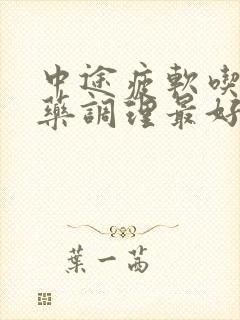 中途疲軟喫
藥調理最好
葉一茜